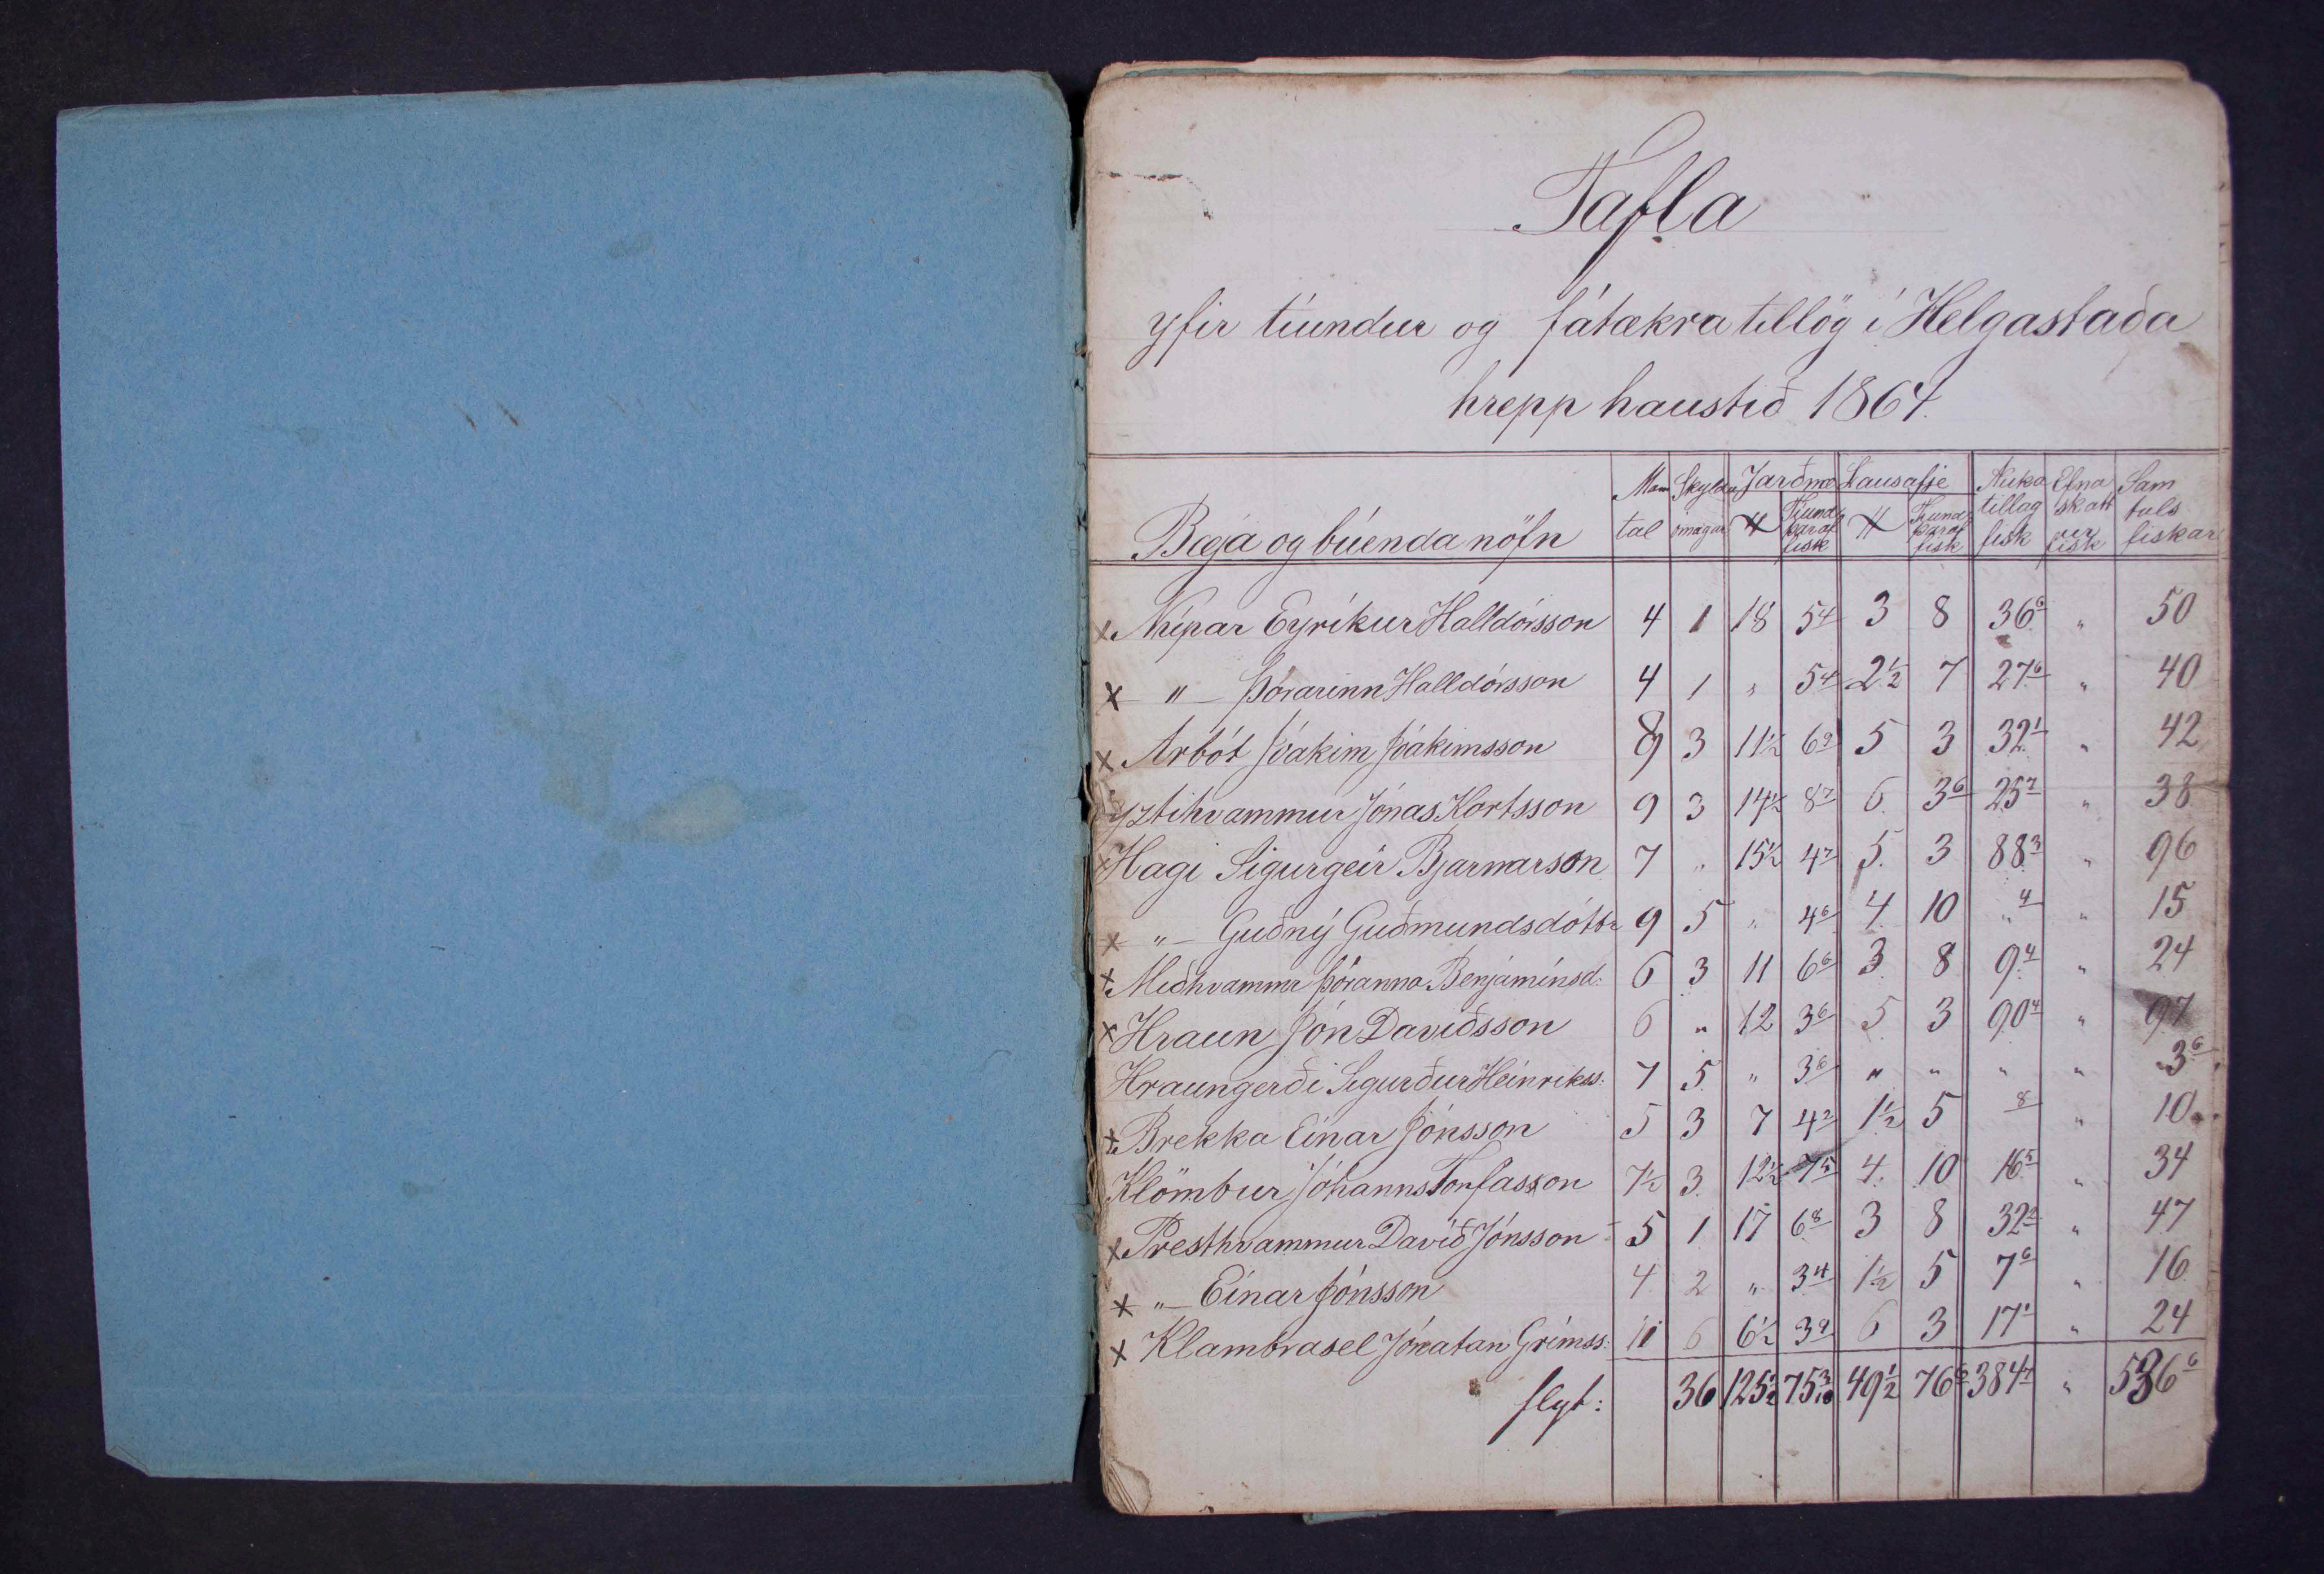 Tafla
yfir tíundur og fátækra tillög í Helgastaða
hrepp haustið 1864.
Bæja og búenda nöfn | Man tal | Skyldu ómagar | Jarðnæ | Lausafje | Auka tillag fisk | Efna skatt ver fisk | Sam tals fiskar
x Nípar Eyríkur Halldórsson 4 1 18 5 4 3 8 36 6 " 50
x — " — Þórarinn Halldórsson 4 1 " 5 4 2½ 7 27 6 " 40
x Árbót Jóakim Jóakimsson 8 3 11½ 6 9 5 3 32 1 " 42
Yztihvammur Jónas Kortsson 9 3 14½ 8 7 6 3 6 25 7 " 38
x Hagi Sigurgeir Bjarnarson 7 " 15½ 4 7 5 3 88 3 " 96
x — " — Guðný Guðmundsdóttr 9 5 " 4 6 4 10 " 4 " 15
x Miðhvammr Þóranna Benjamínsd: 6 3 11 6 6 3 8 9 4 " 24
x Hraun Jón Davíðsson 6 " 12 3 6 5 3 90 4 " 97
Hraungerði Sigurður Heinrikss: 7 5 " 3 6 " " " " 3 6
x Brekka Einar Jónsson 5 3 7 4 2 1½ 5 8 " 10
Klömbur Jóhanns Torfasson 7½ 3 12½ 7 5 4 10 16 5 " 34
x Presthvammur Davíð Jónsson 5 1 17 6 8 3 8 32 2 " 47
x " — Einar Jónsson 4 2 " 3 4 1½ 5 7 6 " 16
x Klambrasel Jónatan Grímss: 11 6 6½ 3 9 6 3 17 1 " 24
flyt: 36 125½ 75 3/10 49½ 76 6 384 7 " 536 6